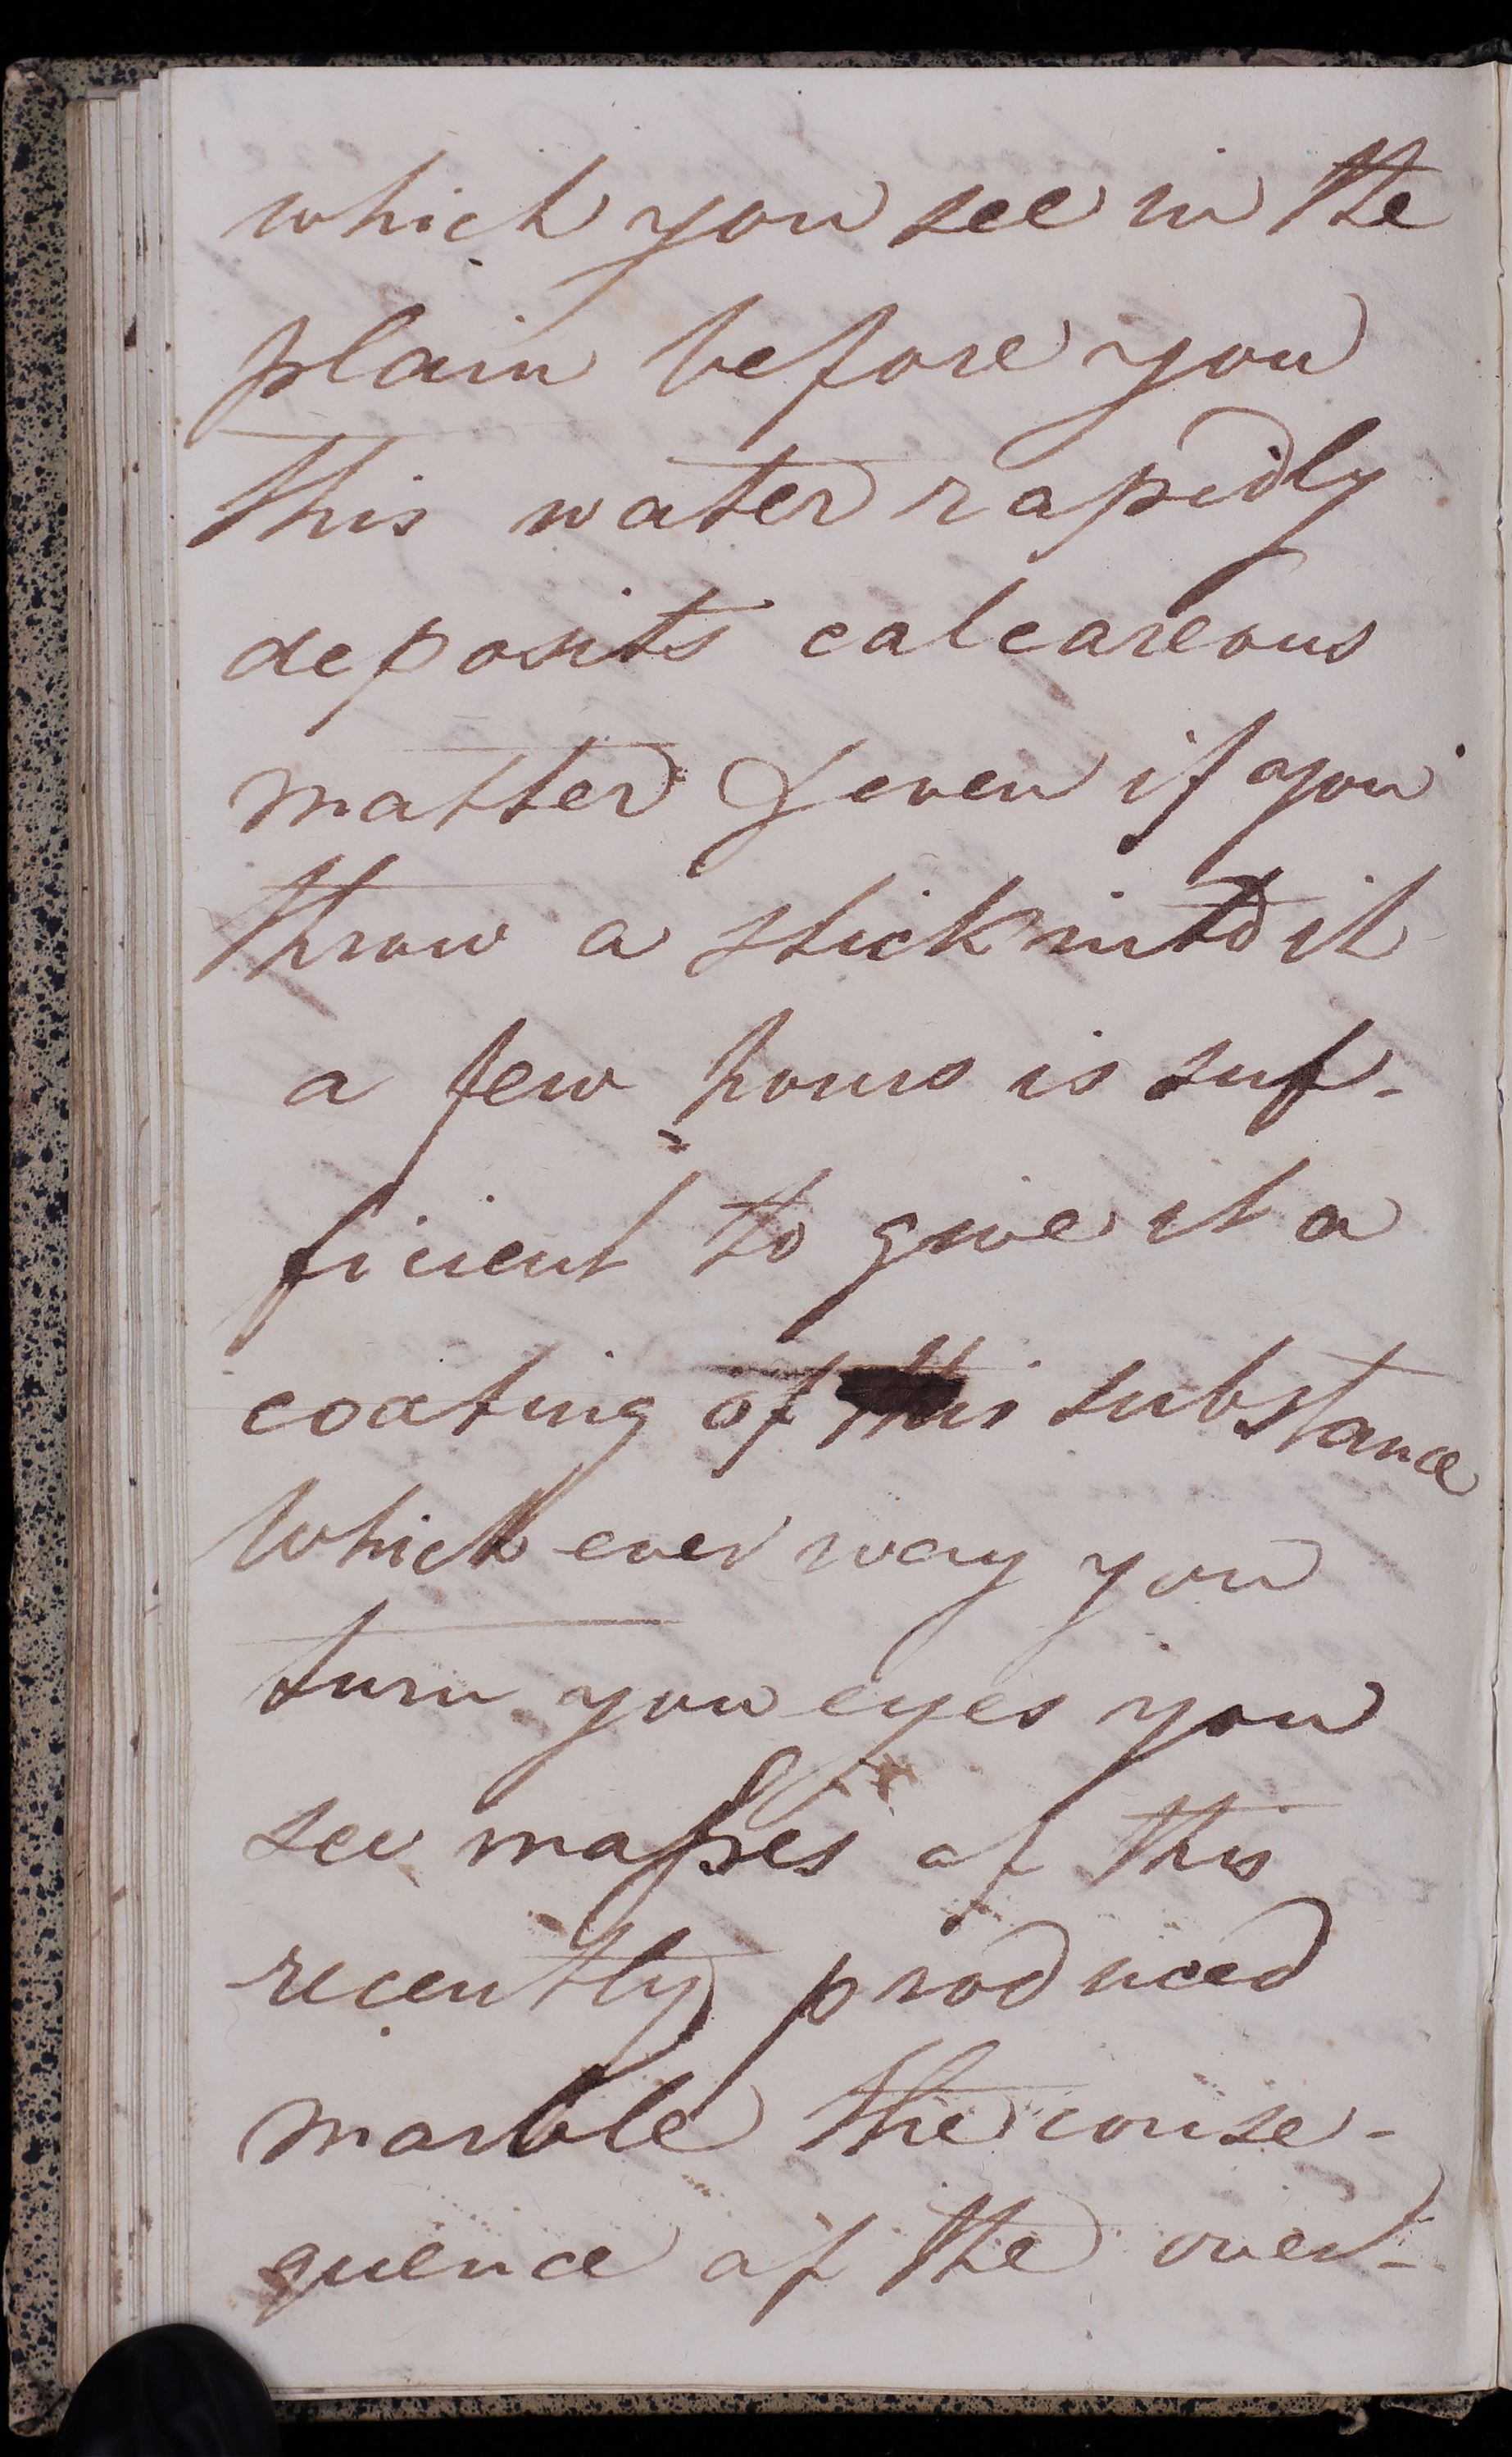 which you see in the
plain before you
this water rapidly
deposits calcareous
matter & even if you
throw a stick into it
a few hours is suf-
ficient to give it a
coating of this substance
Which ever way you
turn you eyes you
see masses of this
recently produced
marble the conse-
quence of the over-